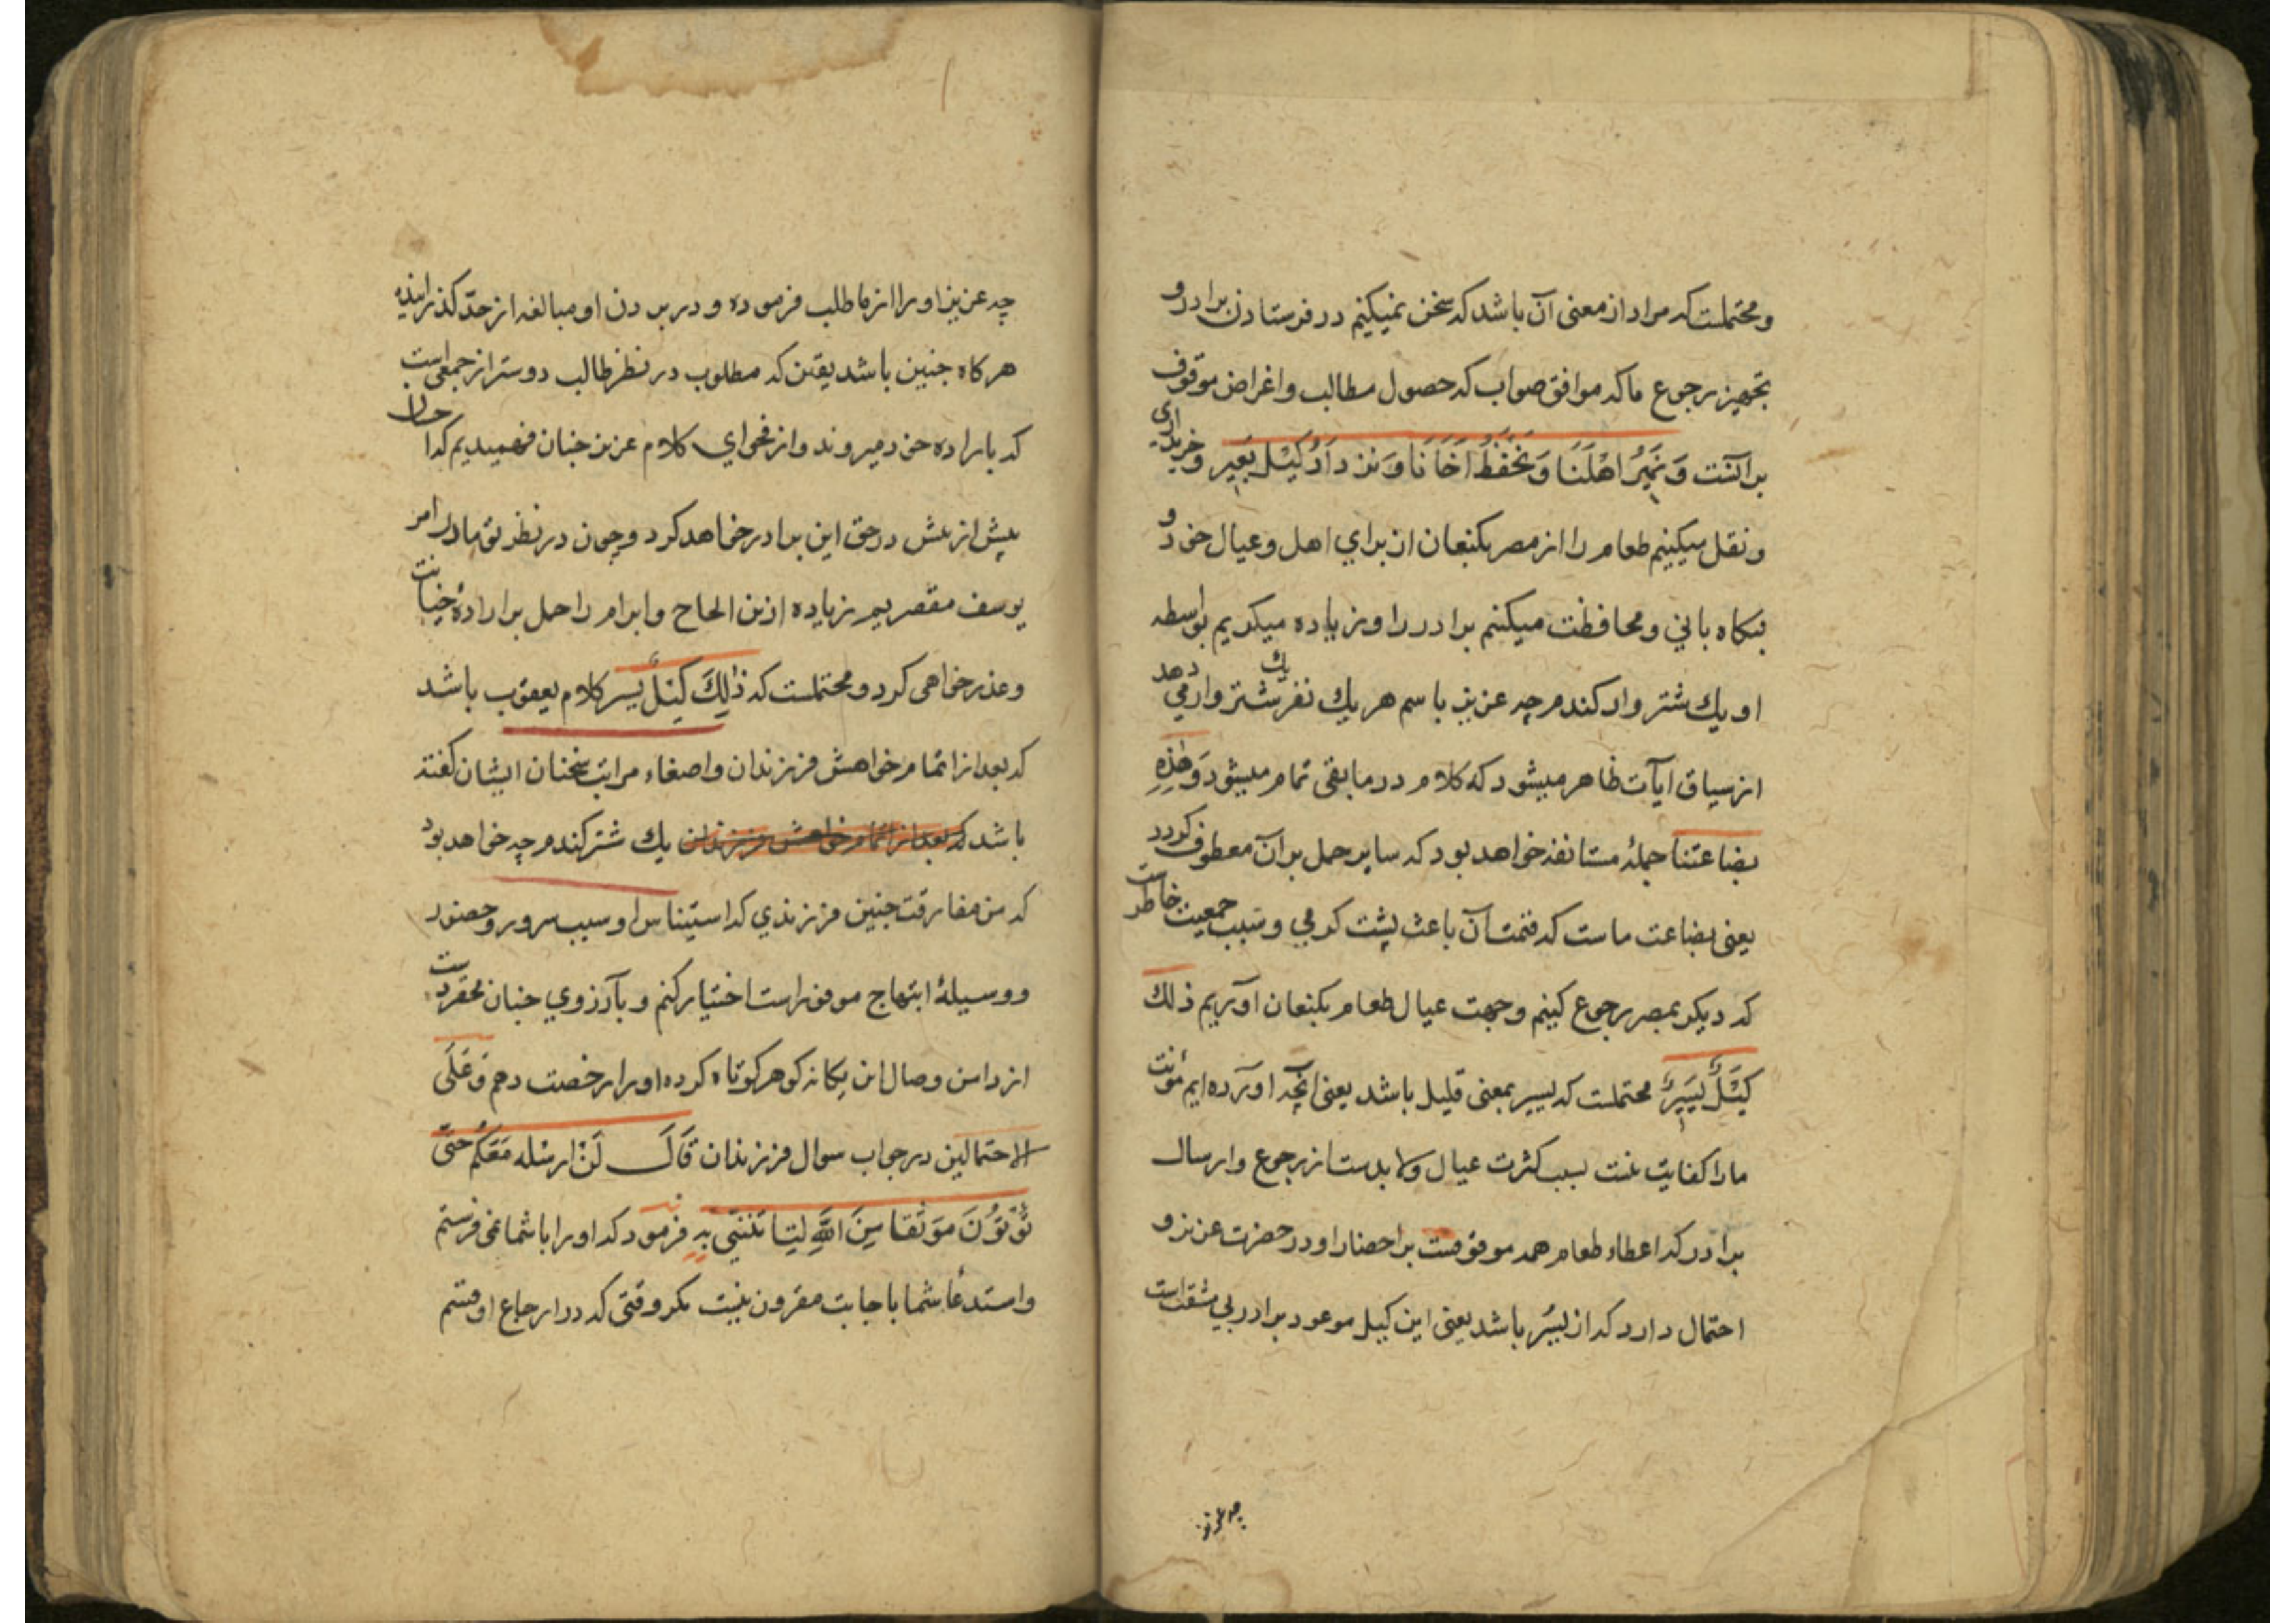 و محتملست که مراد از معنی آن باشد که سخن نمیکنیم در فرستادن برادر و
تجهیز رجوع ما که موافق صواب که حصول مطالب و اغراض موقوف
بر آنست وَ نَمیرُ اَهْلَنَا وَ نَحْفَظُ اَخَانَا وَ نَزدَادُ کَیْلَ بَعیرٍ و خریداری
و نقل میکنیم طعام را از مصر بکنعان از برای اهل و عیال خود و
نکاه بانی و محافظت میکنیم برادر را و زیاده میکریم بواسطه
او یك شتر وار کندم چه عزیز باسم هر یك نفر یك شتر وار می دهد
از سیاق ایآت ظاهر میشود که کلام در مابقی تمام میشود وَهٰذِهِ
بضاعتنا جملهٔ مستانفه خواهد بود که سایر جمل بر آن معطوف کردد
یعنی بضاعت ماست که قیمت آن باعث پشت کرمی و سبب جمعیت خاطرست
که دیکر بمصر رجوع کنیم و جهت عیال طعام بکنعان اوریم ذلك
کَیْلٌ یَسیرٌ محتملست که یسیر بمعنی قلیل باشد یعنی انچه اورده ایم مؤنت
ما را کفایت نیست بسبب کثرت عیال و لا بدست از رجوع و ارسال
برادر که اعطاء طعام همه موقوفست بر احضار او در حضرت عزیز و
احتمال دارد که از یُسْر باشد یعنی این کیل موعود برادر بی مشقت است
چه عزیز
چه عزیز او را از ما طلب فرموده و در بردن او مبالغه از حدّ کذرانیده
هر کاه جنین باشد یقین که مطلوب در نظر طالب دوستر از جمعی است
که باراده خود میروند و از فحوای کلام عزیز جنان فهمیدیم که احسان
بیش از بیش در حق این برادر خواهد کرد و چون در نظر تو ما در امر
یوسف مقصریم زیاده ازین الحاح و ابرام را حمل بر ارادهٔ خیانت
و عذر خواهی کرد و محتملست که ذٰلِكَ کَیْلٌ یسیر کلام یعقوب باشد
که بعد از اتمام خواهش فرزندان و اصغاء مراتب سخنان ایشان کفته
باشد که بعد از اتمام خواهش فرزندان یك شتر کندم چه خواهد بود
که من مفارقت جنین فرزندی که استیناس او سبب سرور و حضور
و وسیلهٔ ابتهاج موفور است اختیار کنم و بآرزوی جنان محقرست
از دامن وصال این یکانه کوهر کوتاه کرده او را رخصت دهم وَ عَلَی
الاحتمالین در جواب سوال فرزندان قَالَ لَنْ ارسله مَعَکُمْ حَتّی
تُؤْتُونَ مَوْثقا مِنَ اللّٰهِ لیَتَا تُنَّنی بِهِ فرمود که او را با شما نمی فرستم
و استدعا شما باجابت مقرون نیست مکر وقتی که در ارجاع او قسم